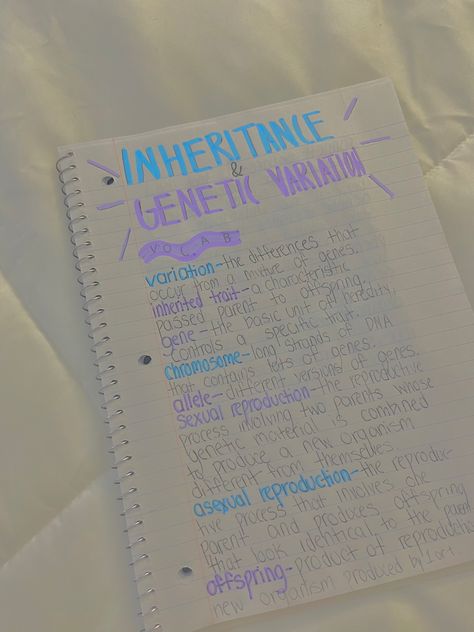 INHERITANCE
&
GENETIC VARIATION
VOCAB
variation-the differences that
occur from a mixture of genes.
inherited trait-a characteristic
passed parent to offspring.
gene-the basic unit of heredity,
controls a specific trait.
chromosome-long strands of DNA
that contains lots of genes.
allele-different versions of genes.
sexual reproduction-the reproductive
process involving two parents whose
genetic material is combined
to produce a new organism
different from themselves
asexual reproduction-the reproduc-
tive process that involves one
parent and produces offspring
that look identical to the parent
offspring-product of reproduction,
new organism produced by 1 or